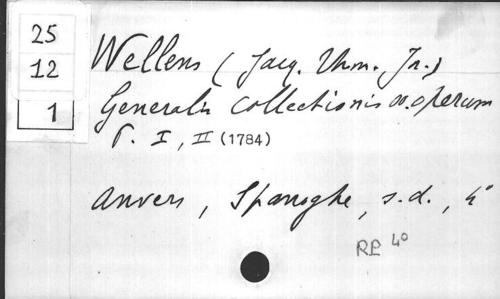 25
12
1
Wellens (Jacq. Thom. Jr.)
Generalis collectionis oo. operum
T. I, II (1784)
Anvers, Spanoghe, s.d., 4°
RP 4°